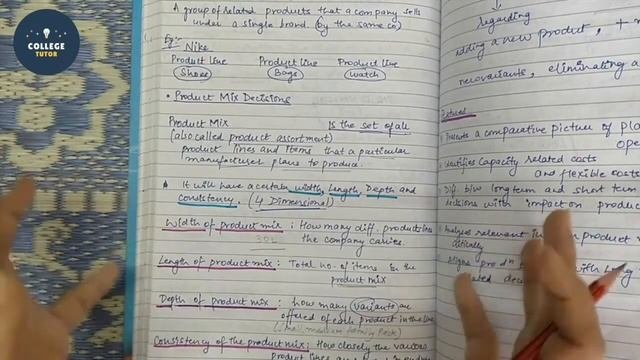 COLLEGE
TUTOR
A group of related products that a company sells
under a single brand. (by the same co)
Eg:- Nike
Product line Product line Product line
Shoes Bags Watch
• Product Mix Decisions
Product Mix Is the set of all
(also called product assortment)
product lines and items that a particular
manufacturer plans to produce.
It will have a certain width, Length, Depth and
consistency. (4 Dimensional)
Width of product mix: How many diff. product lines
the company carries.
Length of product mix: Total no. of items in the
product mix
Depth of product mix: how many (variants) are
offered of each product in the line
Consistency of the product mix: How closely the various
product lines
regarding
adding a new product, +
new variants, eliminating a
Presents a comparative picture of
Identifies capacity related costs
and flexible costs
Diff. b/w long term and short term
decisions with impact on
Analyses relevant product
Aligns with long